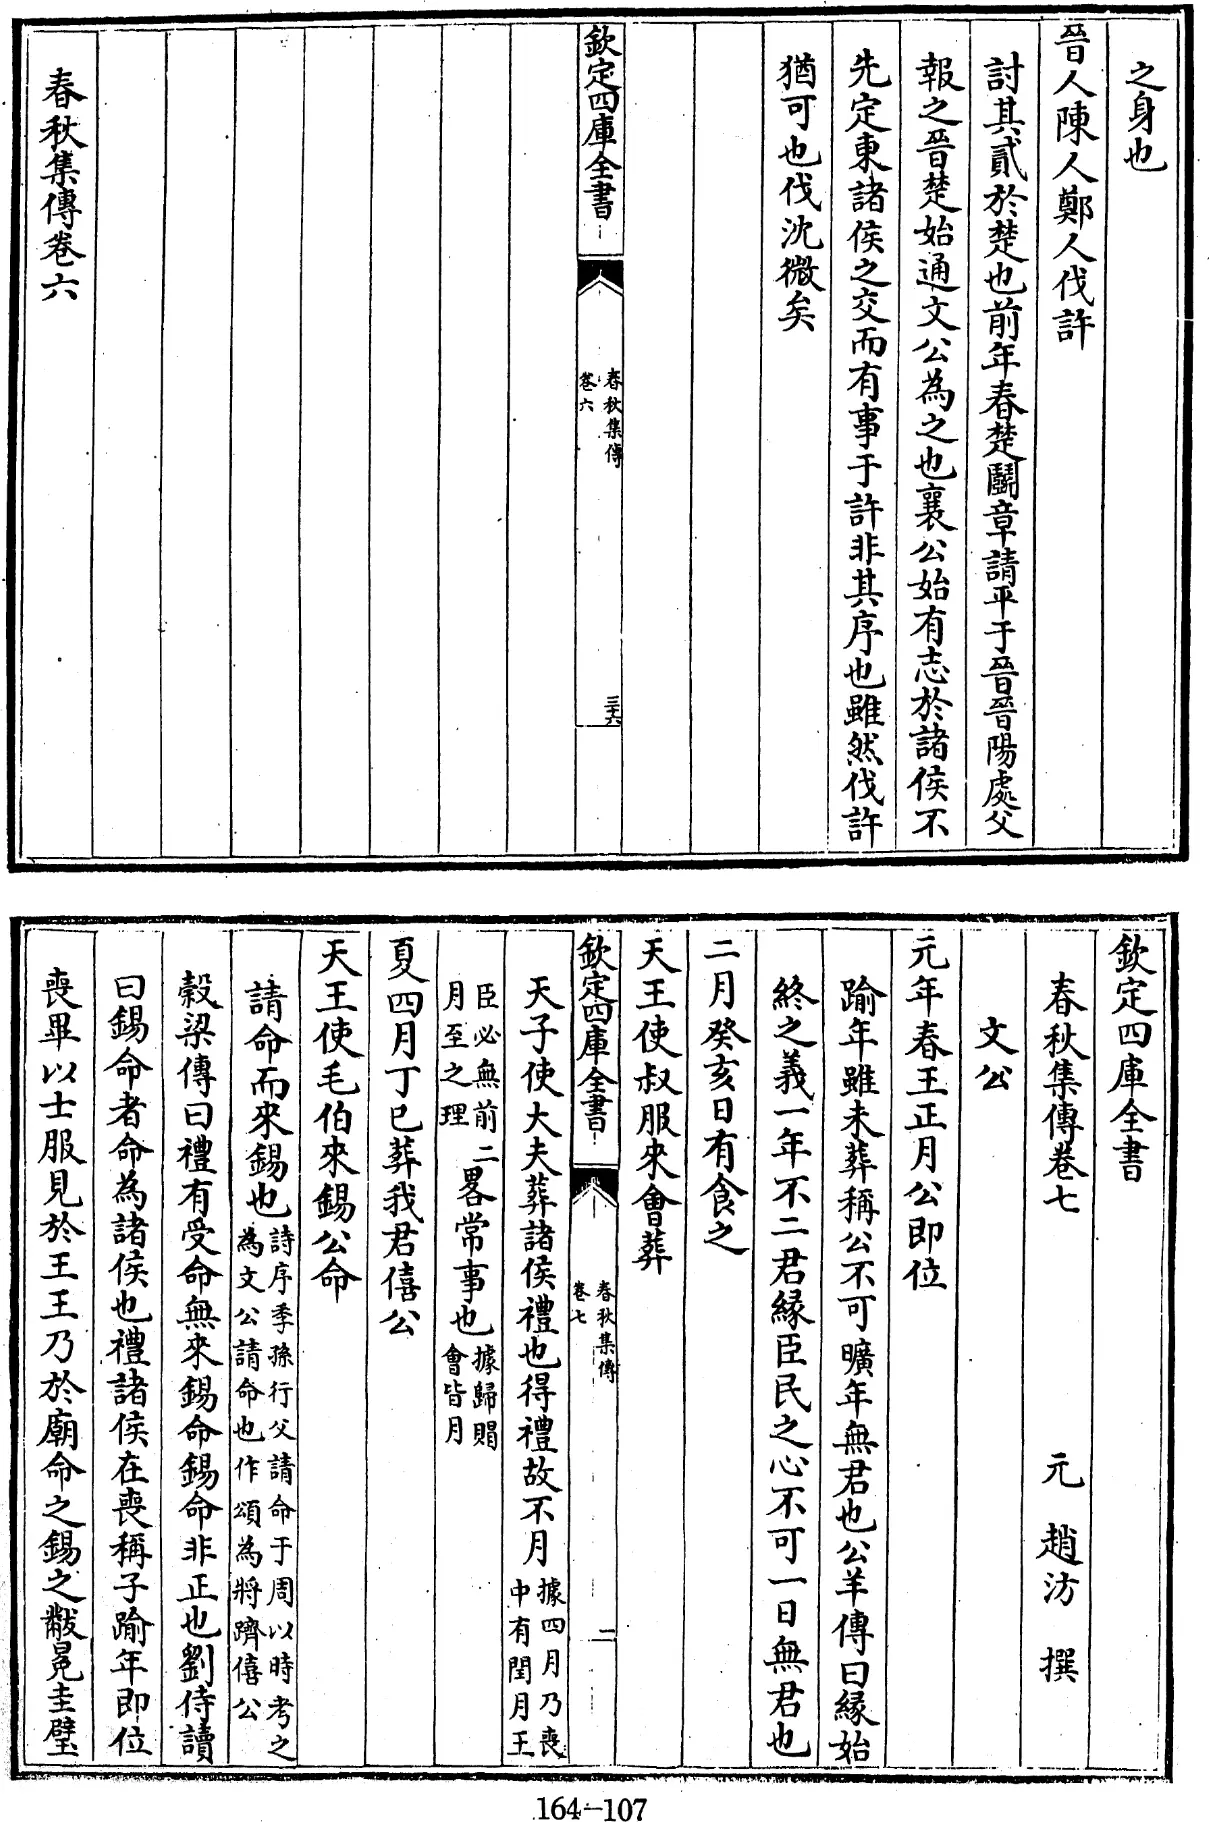 之身也
晉人陳人鄭人伐許
討其貳於楚也前年春楚鬭章請平于晉晉陽處父
報之晉楚始通文公為之也襄公始有志於諸侯不
先定東諸侯之交而有事于許非其序也雖然伐許
猶可也伐沈微矣
欽定四庫全書
春秋集傳
卷六
三十六
春秋集傳卷六
欽定四庫全書
春秋集傳卷七
元 趙汸 撰
文公
元年春王正月公即位
踰年雖未葬稱公不可曠年無君也公羊傳曰緣始
終之義一年不二君緣臣民之心不可一日無君也
二月癸亥日有食之
天王使叔服來會葬
欽定四庫全書
春秋集傳
卷七
一
天子使大夫葬諸侯禮也得禮故不月據四月乃喪
中有閏月王
臣必無前二
月至之理
畧常事也據歸賵
會皆月
夏四月丁巳葬我君僖公
天王使毛伯來錫公命
請命而來錫也詩序季孫行父請命于周以時考之
為文公請命也作頌為將躋僖公
穀梁傳曰禮有受命無來錫命錫命非正也劉侍讀
曰錫命者命為諸侯也禮諸侯在喪稱子踰年即位
喪畢以士服見於王王乃於廟命之錫之黻冕圭璧
164-107